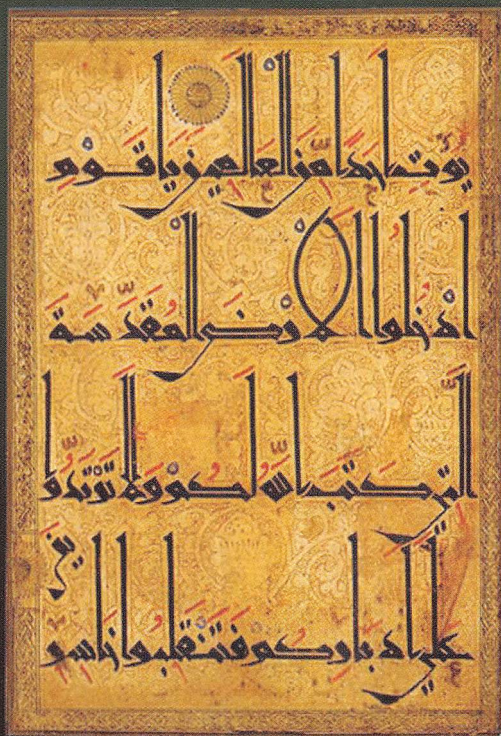 يُؤتِ اَحَدًا مِّنَ العَالَمِينَ يَاقَومِ
ادخُلُوا الاَرضَ المُقَدَّسَةَ
الَّتِي كَتَبَ اللّهُ لَكُم وَلَا تَرتَدُّوا
عَلَى اَدبَارِكُم فَتَنقَلِبُوا خَاسِرِينَ